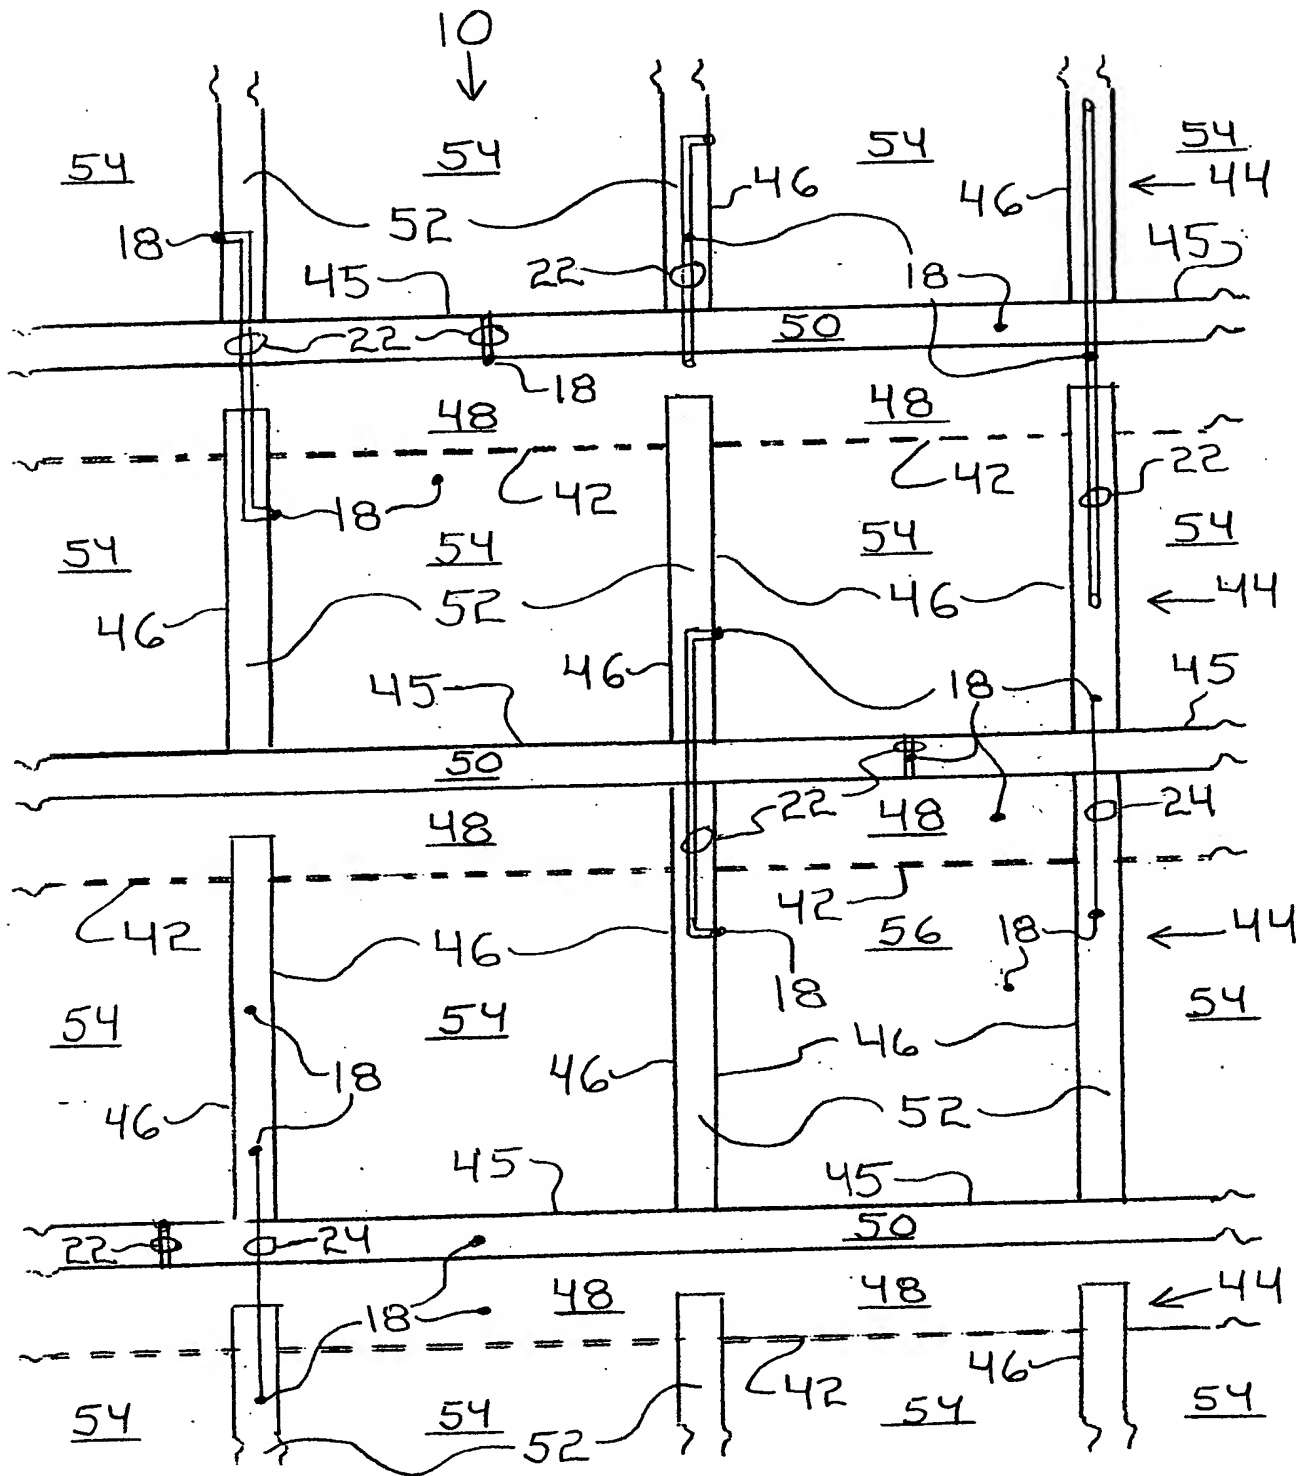 10
54 54 54 54
46 46 44
52
18 45 22 18 45
22 50
18
48 48
42 42 22
18
54 54 54 54
46 52 46 44
46 18 45
45
50
22 48 24
48
42 42 56 18 44
46 18
54 54 54
18 46 46
46 52
45 45
22 24 50
18 48 48 44
42 46
54 54 54 54
52